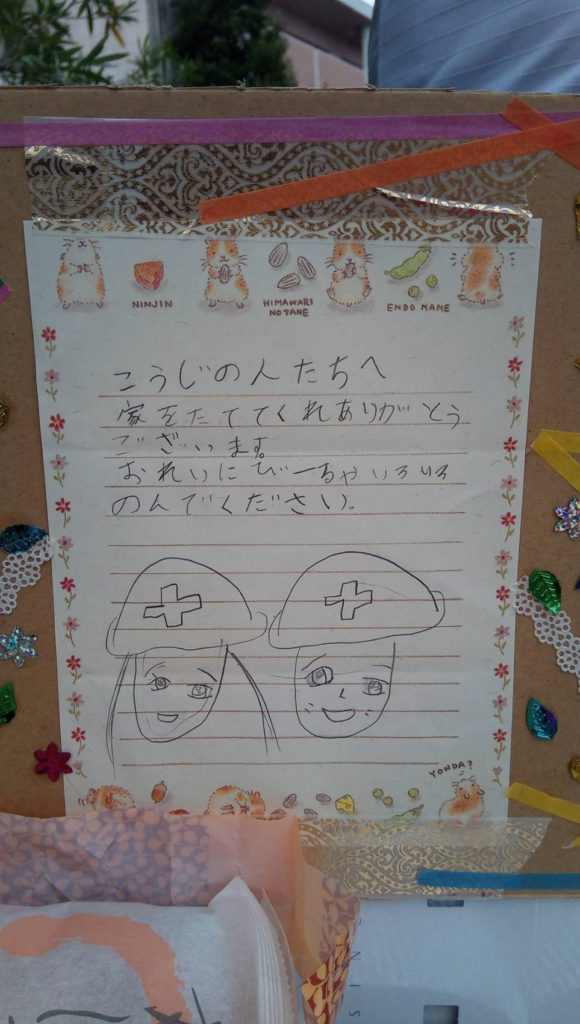 NINJIN
HIMAWARI
NO TANE
ENDO MAME
こうじの人たちへ
家をたててくれありがとう
ございます。
おれいにびーるやいろいろ
のんでください。
YONDA?